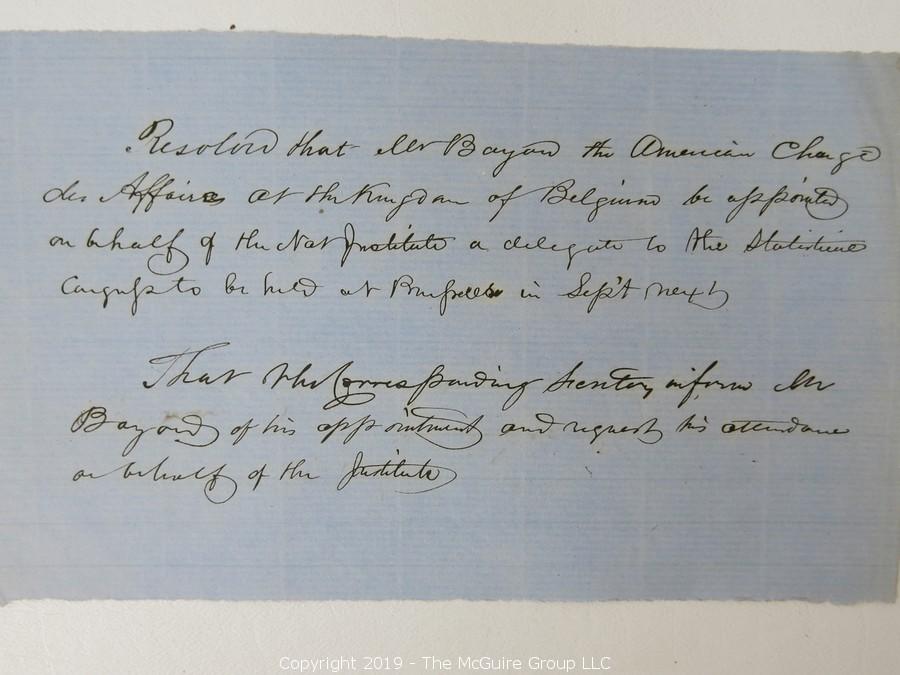 Resolved that Mr Bayard the American Charge
des Affaires at the Kingdom of Belgium be appointed
on behalf of the Nat Institute a delegate to the Statistical
Congress to be held at Brussels in Sept next
That the Corresponding Secretary inform Mr
Bayard of his appointment and request his attendance
on behalf of the Institute
Copyright 2019 - The McGuire Group LLC